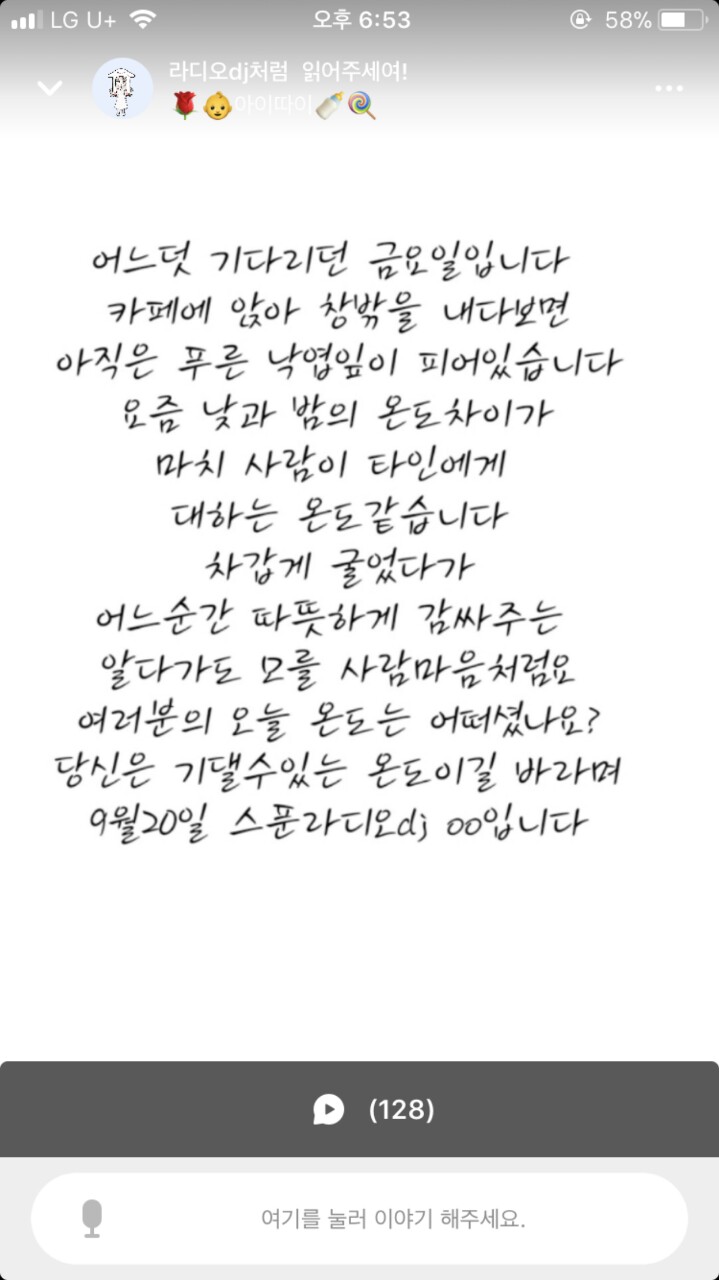 LG U+ 오후 6:53 58%
라디오dj처럼 읽어주세여!
🌹👶아이따이🍼🍭
어느덧 기다리던 금요일입니다
카페에 앉아 창밖을 내다보면
아직은 푸른 낙엽잎이 피어있습니다
요즘 낮과 밤의 온도차이가
마치 사람이 타인에게
대하는 온도같습니다
차갑게 굴었다가
어느순간 따뜻하게 감싸주는
알다가도 모를 사람마음처럼요
여러분의 오늘 온도는 어떠셨나요?
당신은 기댈수있는 온도이길 바라며
9월20일 스푼라디오dj oo입니다
(128)
여기를 눌러 이야기 해주세요.